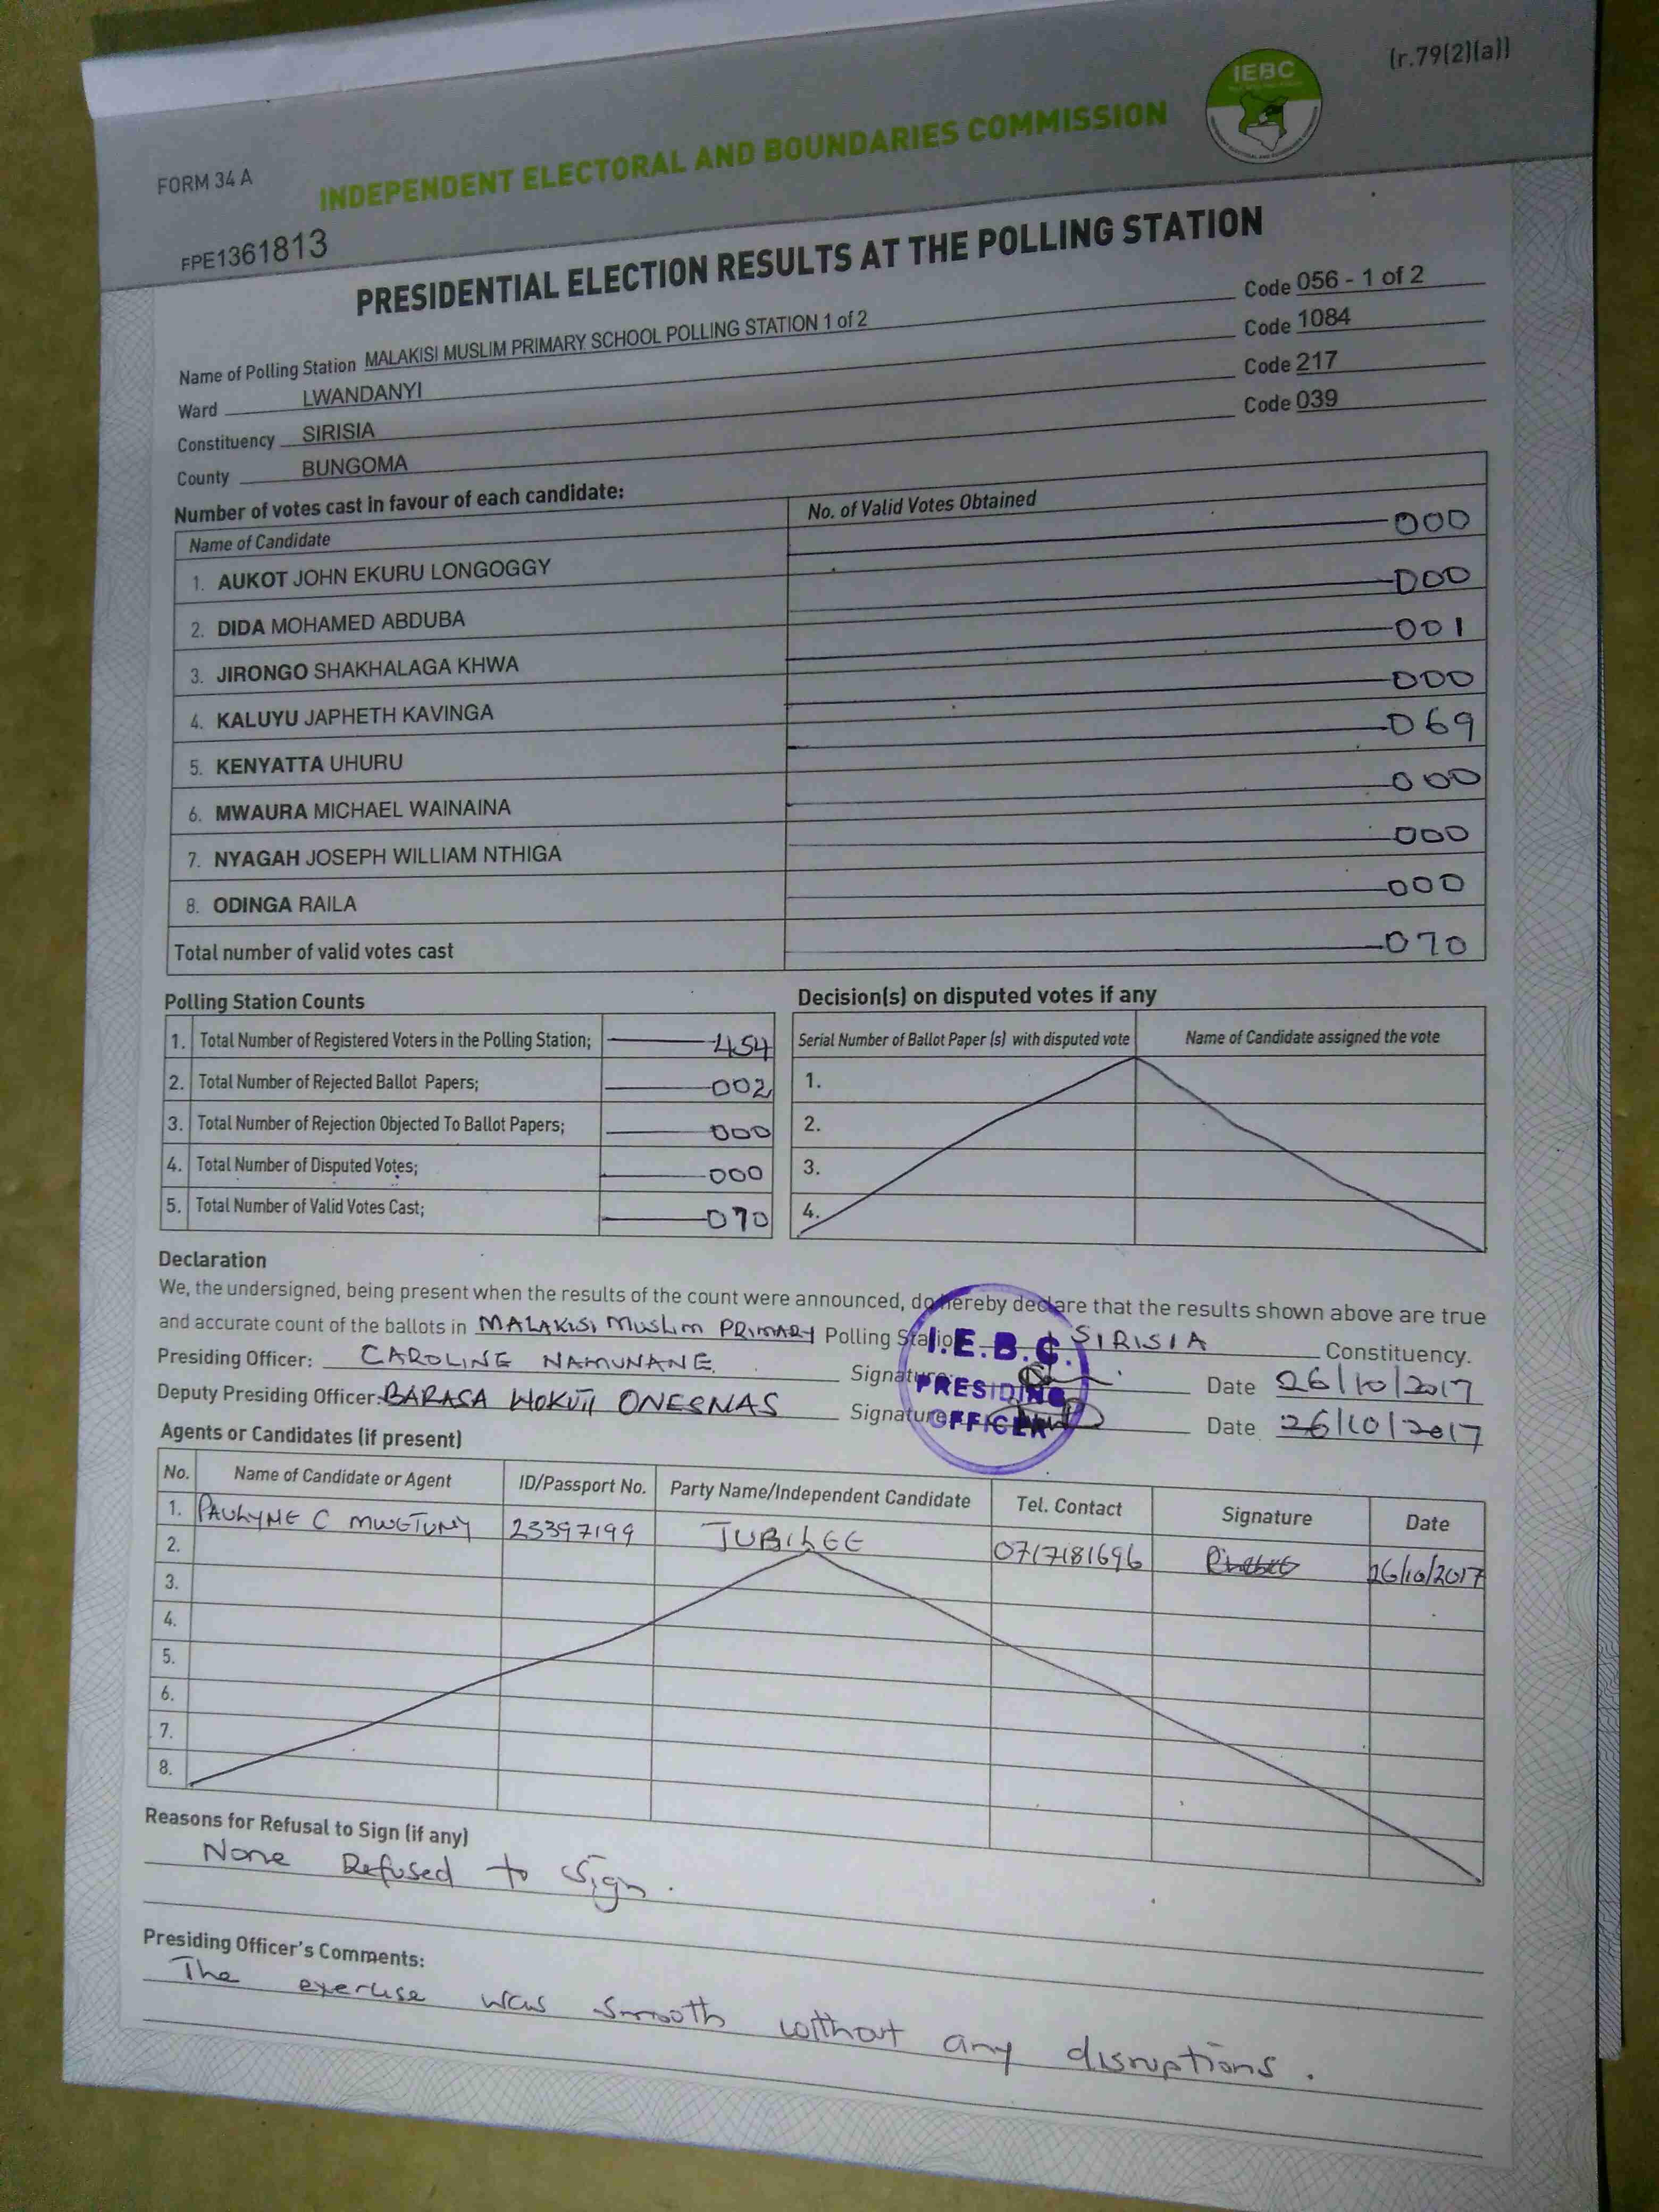 (r.79(2)(a))
IEBC
FORM 34 A
INDEPENDENT ELECTORAL AND BOUNDARIES COMMISSION
FPE1361813
PRESIDENTIAL ELECTION RESULTS AT THE POLLING STATION
Name of Polling Station MALAKISI MUSLIM PRIMARY SCHOOL POLLING STATION 1 of 2 Code 056 - 1 of 2
Ward LWANDANYI Code 1084
Constituency SIRISIA Code 217
County BUNGOMA Code 039
Number of votes cast in favour of each candidate:
Name of Candidate No. of Valid Votes Obtained
1. AUKOT JOHN EKURU LONGOGGY 000
2. DIDA MOHAMED ABDUBA 000
3. JIRONGO SHAKHALAGA KHWA 001
4. KALUYU JAPHETH KAVINGA 000
5. KENYATTA UHURU 069
6. MWAURA MICHAEL WAINAINA 000
7. NYAGAH JOSEPH WILLIAM NTHIGA 000
8. ODINGA RAILA 000
Total number of valid votes cast 070
Polling Station Counts
1. Total Number of Registered Voters in the Polling Station; 454
2. Total Number of Rejected Ballot Papers; 002
3. Total Number of Rejection Objected To Ballot Papers; 000
4. Total Number of Disputed Votes; 000
5. Total Number of Valid Votes Cast; 070
Decision(s) on disputed votes if any
Serial Number of Ballot Paper (s) with disputed vote Name of Candidate assigned the vote
1.
2.
3.
4.
Declaration
We, the undersigned, being present when the results of the count were announced, do hereby declare that the results shown above are true
and accurate count of the ballots in MALAKISI MUSLIM PRIMARY Polling Station SIRISIA Constituency.
Presiding Officer: CAROLINE NAMUNANE Signature: Date 26/10/2017
Deputy Presiding Officer: BARASA Signature: Date 26/10/2017
I.E.B.C.
PRESIDING
OFFICER
Agents or Candidates (if present)
No. Name of Candidate or Agent ID/Passport No. Party Name/Independent Candidate Tel. Contact Signature Date
1. PAULYNE C 23397199 JUBILEE 0717181696 26/10/2017
2.
3.
4.
5.
6.
7.
8.
Reasons for Refusal to Sign (if any)
None Refused to sign.
Presiding Officer's Comments:
The exercise was smooth without any disruptions.